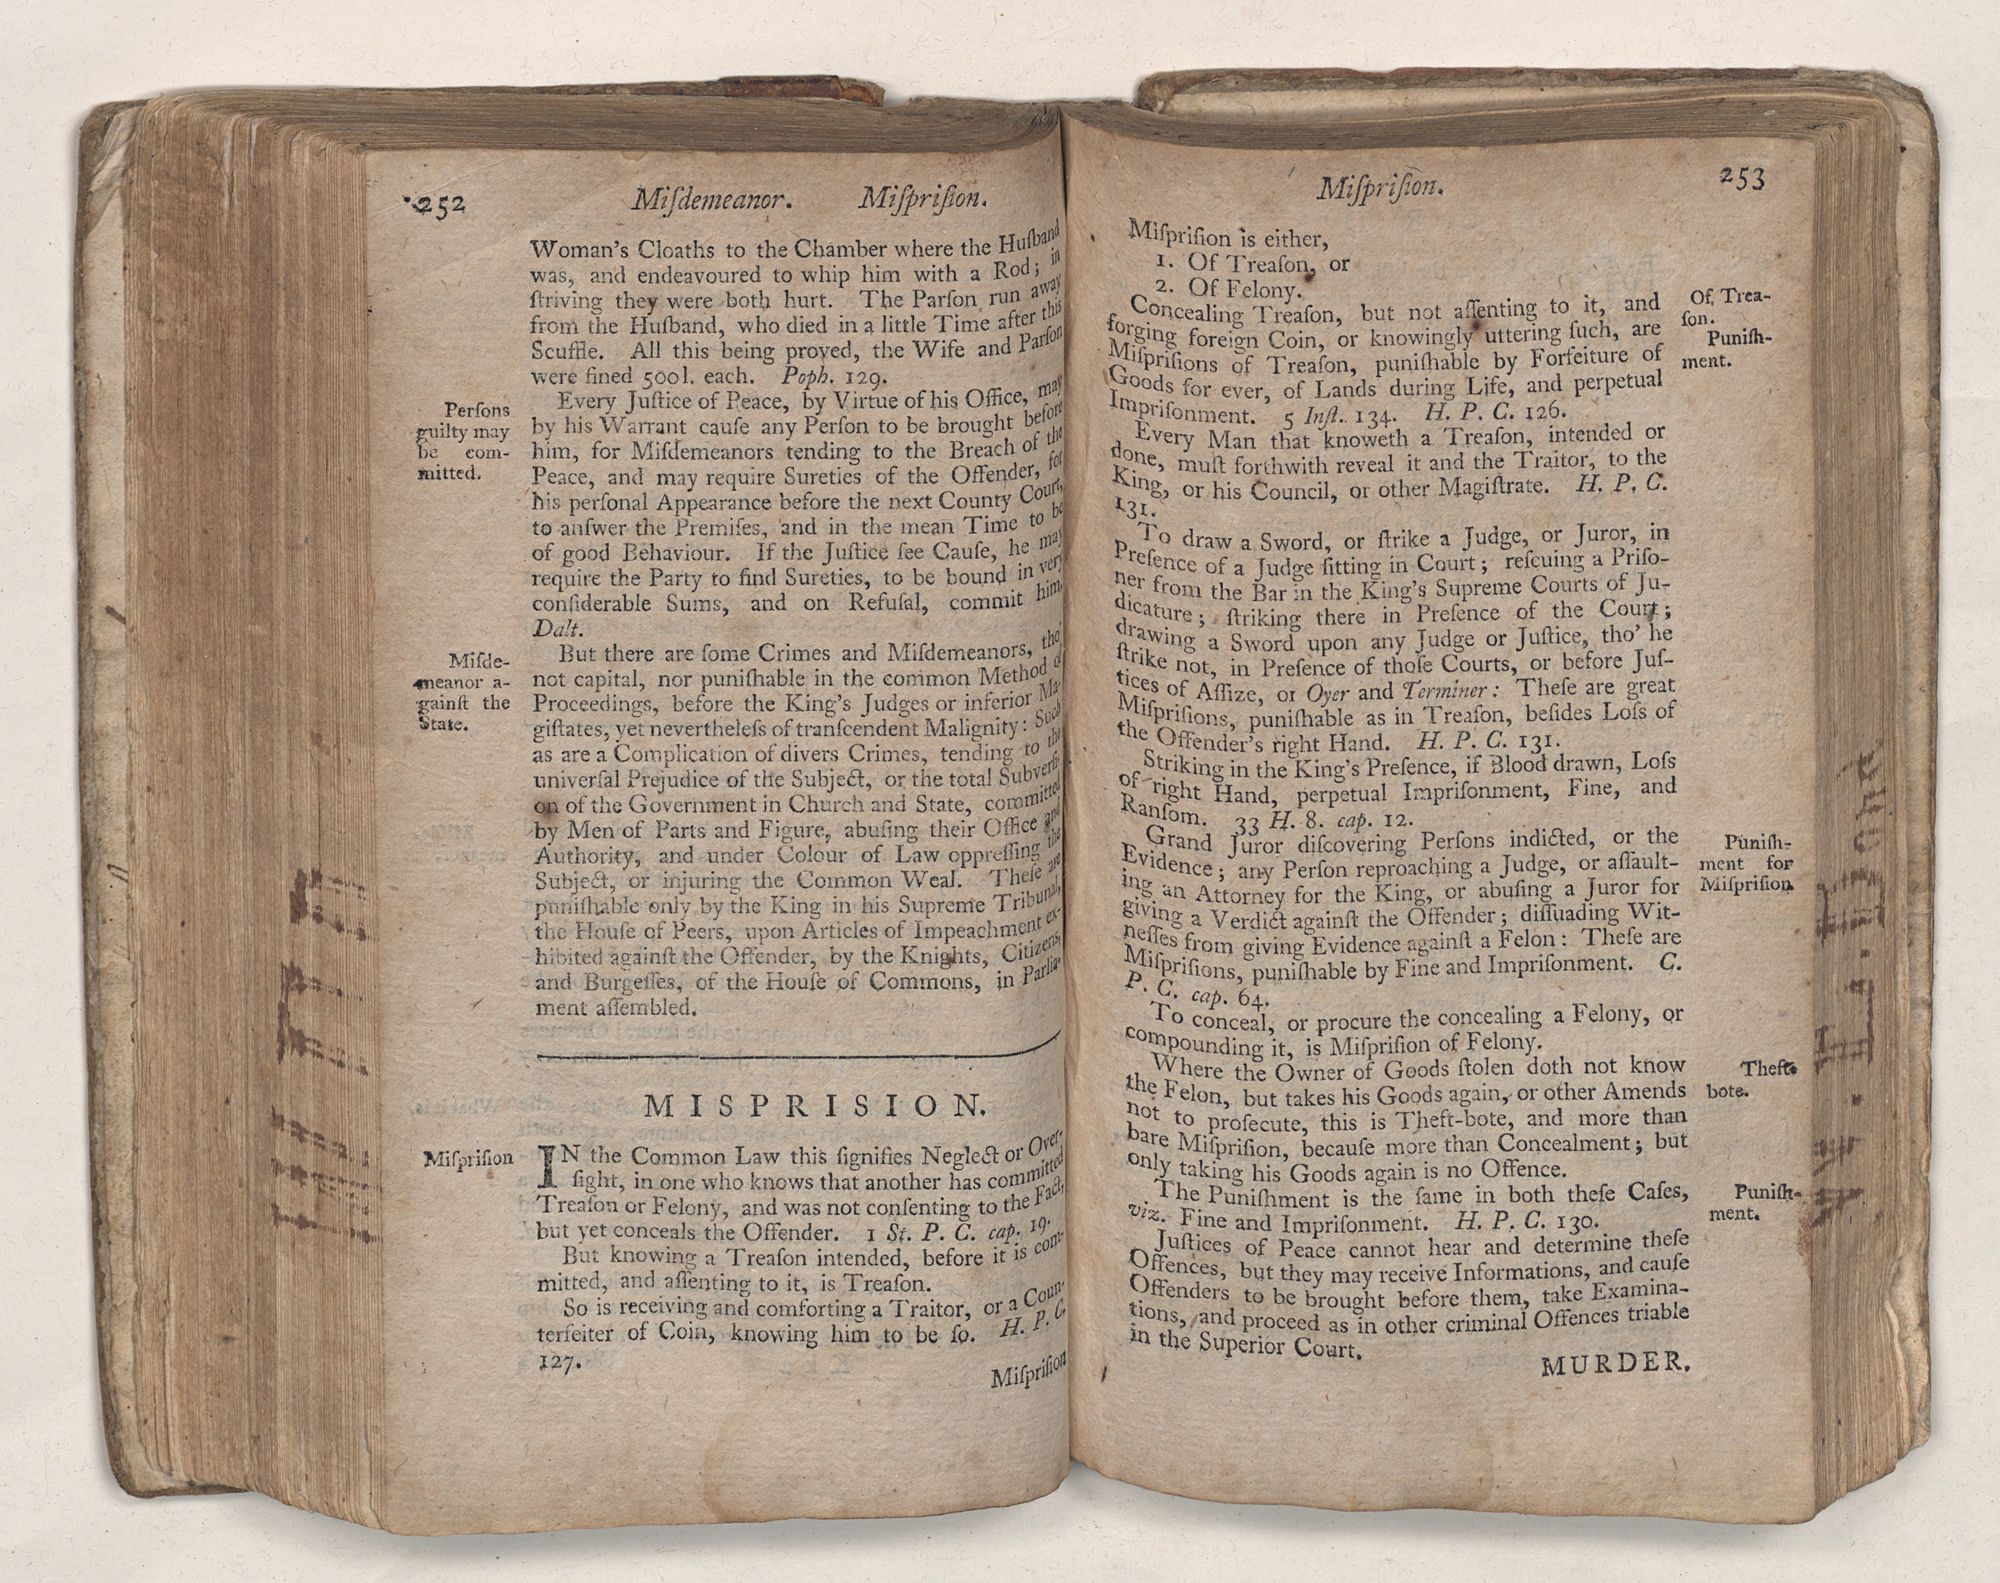 252 Miſdemeanor. Miſpriſion.
Woman's Cloaths to the Chamber where the Huſband
was, and endeavoured to whip him with a Rod; in
ſtriving they were both hurt. The Parſon run away
from the Huſband, who died in a little Time after this
Scuffle. All this being proved, the Wife and Parſon
were fined 500l. each. Poph. 129.
Perſons
guilty may
be com-
mitted.
Every Juſtice of Peace, by Virtue of his Office, may
by his Warrant cauſe any Perſon to be brought before
him, for Miſdemeanors tending to the Breach of the
Peace, and may require Sureties of the Offender, for
his perſonal Appearance before the next County Court,
to anſwer the Premiſes, and in the mean Time to be
of good Behaviour. If the Juſtice ſee Cauſe, he may
require the Party to find Sureties, to be bound in very
conſiderable Sums, and on Refuſal, commit him.
Dalt.
Miſde-
meanor a-
gainſt the
State.
But there are ſome Crimes and Miſdemeanors, tho'
not capital, nor puniſhable in the common Method of
Proceedings, before the King's Judges or inferior Ma-
giſtates, yet nevertheleſs of tranſcendent Malignity: Such
as are a Complication of divers Crimes, tending to the
univerſal Prejudice of the Subject, or the total Subverſi-
on of the Government in Church and State, committed
by Men of Parts and Figure, abuſing their Office and
Authority, and under Colour of Law oppreſſing the
Subject, or injuring the Common Weal. Theſe are
puniſhable only by the King in his Supreme Tribunal,
the Houſe of Peers, upon Articles of Impeachment ex-
hibited againſt the Offender, by the Knights, Citizens,
and Burgeſſes, of the Houſe of Commons, in Parlia-
ment aſſembled.
MISPRISION.
Miſpriſion
IN the Common Law this ſignifies Neglect or Over-
ſight, in one who knows that another has committed
Treaſon or Felony, and was not conſenting to the Fact,
but yet conceals the Offender. 1 St. P. C. cap. 19.
But knowing a Treaſon intended, before it is com-
mitted, and aſſenting to it, is Treaſon.
So is receiving and comforting a Traitor, or a Coun-
terfeiter of Coin, knowing him to be ſo. H. P. C.
127.
Miſpriſion
Miſpriſion. 253
Miſpriſion is either,
1. Of Treaſon, or
2. Of Felony.
Of Trea-
ſon.
Puniſh-
ment.
Concealing Treaſon, but not aſſenting to it, and
forging foreign Coin, or knowingly uttering ſuch, are
Miſpriſions of Treaſon, puniſhable by Forfeiture of
Goods for ever, of Lands during Life, and perpetual
Impriſonment. 5 Inſt. 134. H. P. C. 126.
Every Man that knoweth a Treaſon, intended or
done, muſt forthwith reveal it and the Traitor, to the
King, or his Council, or other Magiſtrate. H. P. C.
131.
To draw a Sword, or ſtrike a Judge, or Juror, in
Preſence of a Judge ſitting in Court; reſcuing a Priſo-
ner from the Bar in the King's Supreme Courts of Ju-
dicature; ſtriking there in Preſence of the Court;
drawing a Sword upon any Judge or Juſtice, tho' he
ſtrike not, in Preſence of thoſe Courts, or before Juſ-
tices of Aſſize, or Oyer and Terminer: Theſe are great
Miſpriſions, puniſhable as in Treaſon, beſides Loſs of
the Offender's right Hand. H. P. C. 131.
Striking in the King's Preſence, if Blood drawn, Loſs
of right Hand, perpetual Impriſonment, Fine, and
Ranſom. 33 H. 8. cap. 12.
Puniſh-
ment for
Miſpriſion
Grand Juror diſcovering Perſons indicted, or the
Evidence; any Perſon reproaching a Judge, or aſſault-
ing an Attorney for the King, or abuſing a Juror for
giving a Verdict againſt the Offender; diſſuading Wit-
neſſes from giving Evidence againſt a Felon: Theſe are
Miſpriſions, puniſhable by Fine and Impriſonment. C.
P. C. cap. 64.
To conceal, or procure the concealing a Felony, or
compounding it, is Miſpriſion of Felony.
Theft-
bote.
Where the Owner of Goods ſtolen doth not know
the Felon, but takes his Goods again, or other Amends
not to proſecute, this is Theft-bote, and more than
bare Miſpriſion, becauſe more than Concealment; but
only taking his Goods again is no Offence.
Puniſh-
ment.
The Puniſhment is the ſame in both theſe Caſes,
viz. Fine and Impriſonment. H. P. C. 130.
Juſtices of Peace cannot hear and determine theſe
Offences, but they may receive Informations, and cauſe
Offenders to be brought before them, take Examina-
tions, and proceed as in other criminal Offences triable
in the Superior Court.
MURDER.